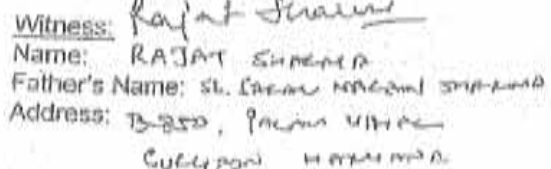 Witness: Rajat Sharma
Name: RAJAT SHARMA
Father's Name: SHARMA
Address: B-250, VIHAR
HARYANA